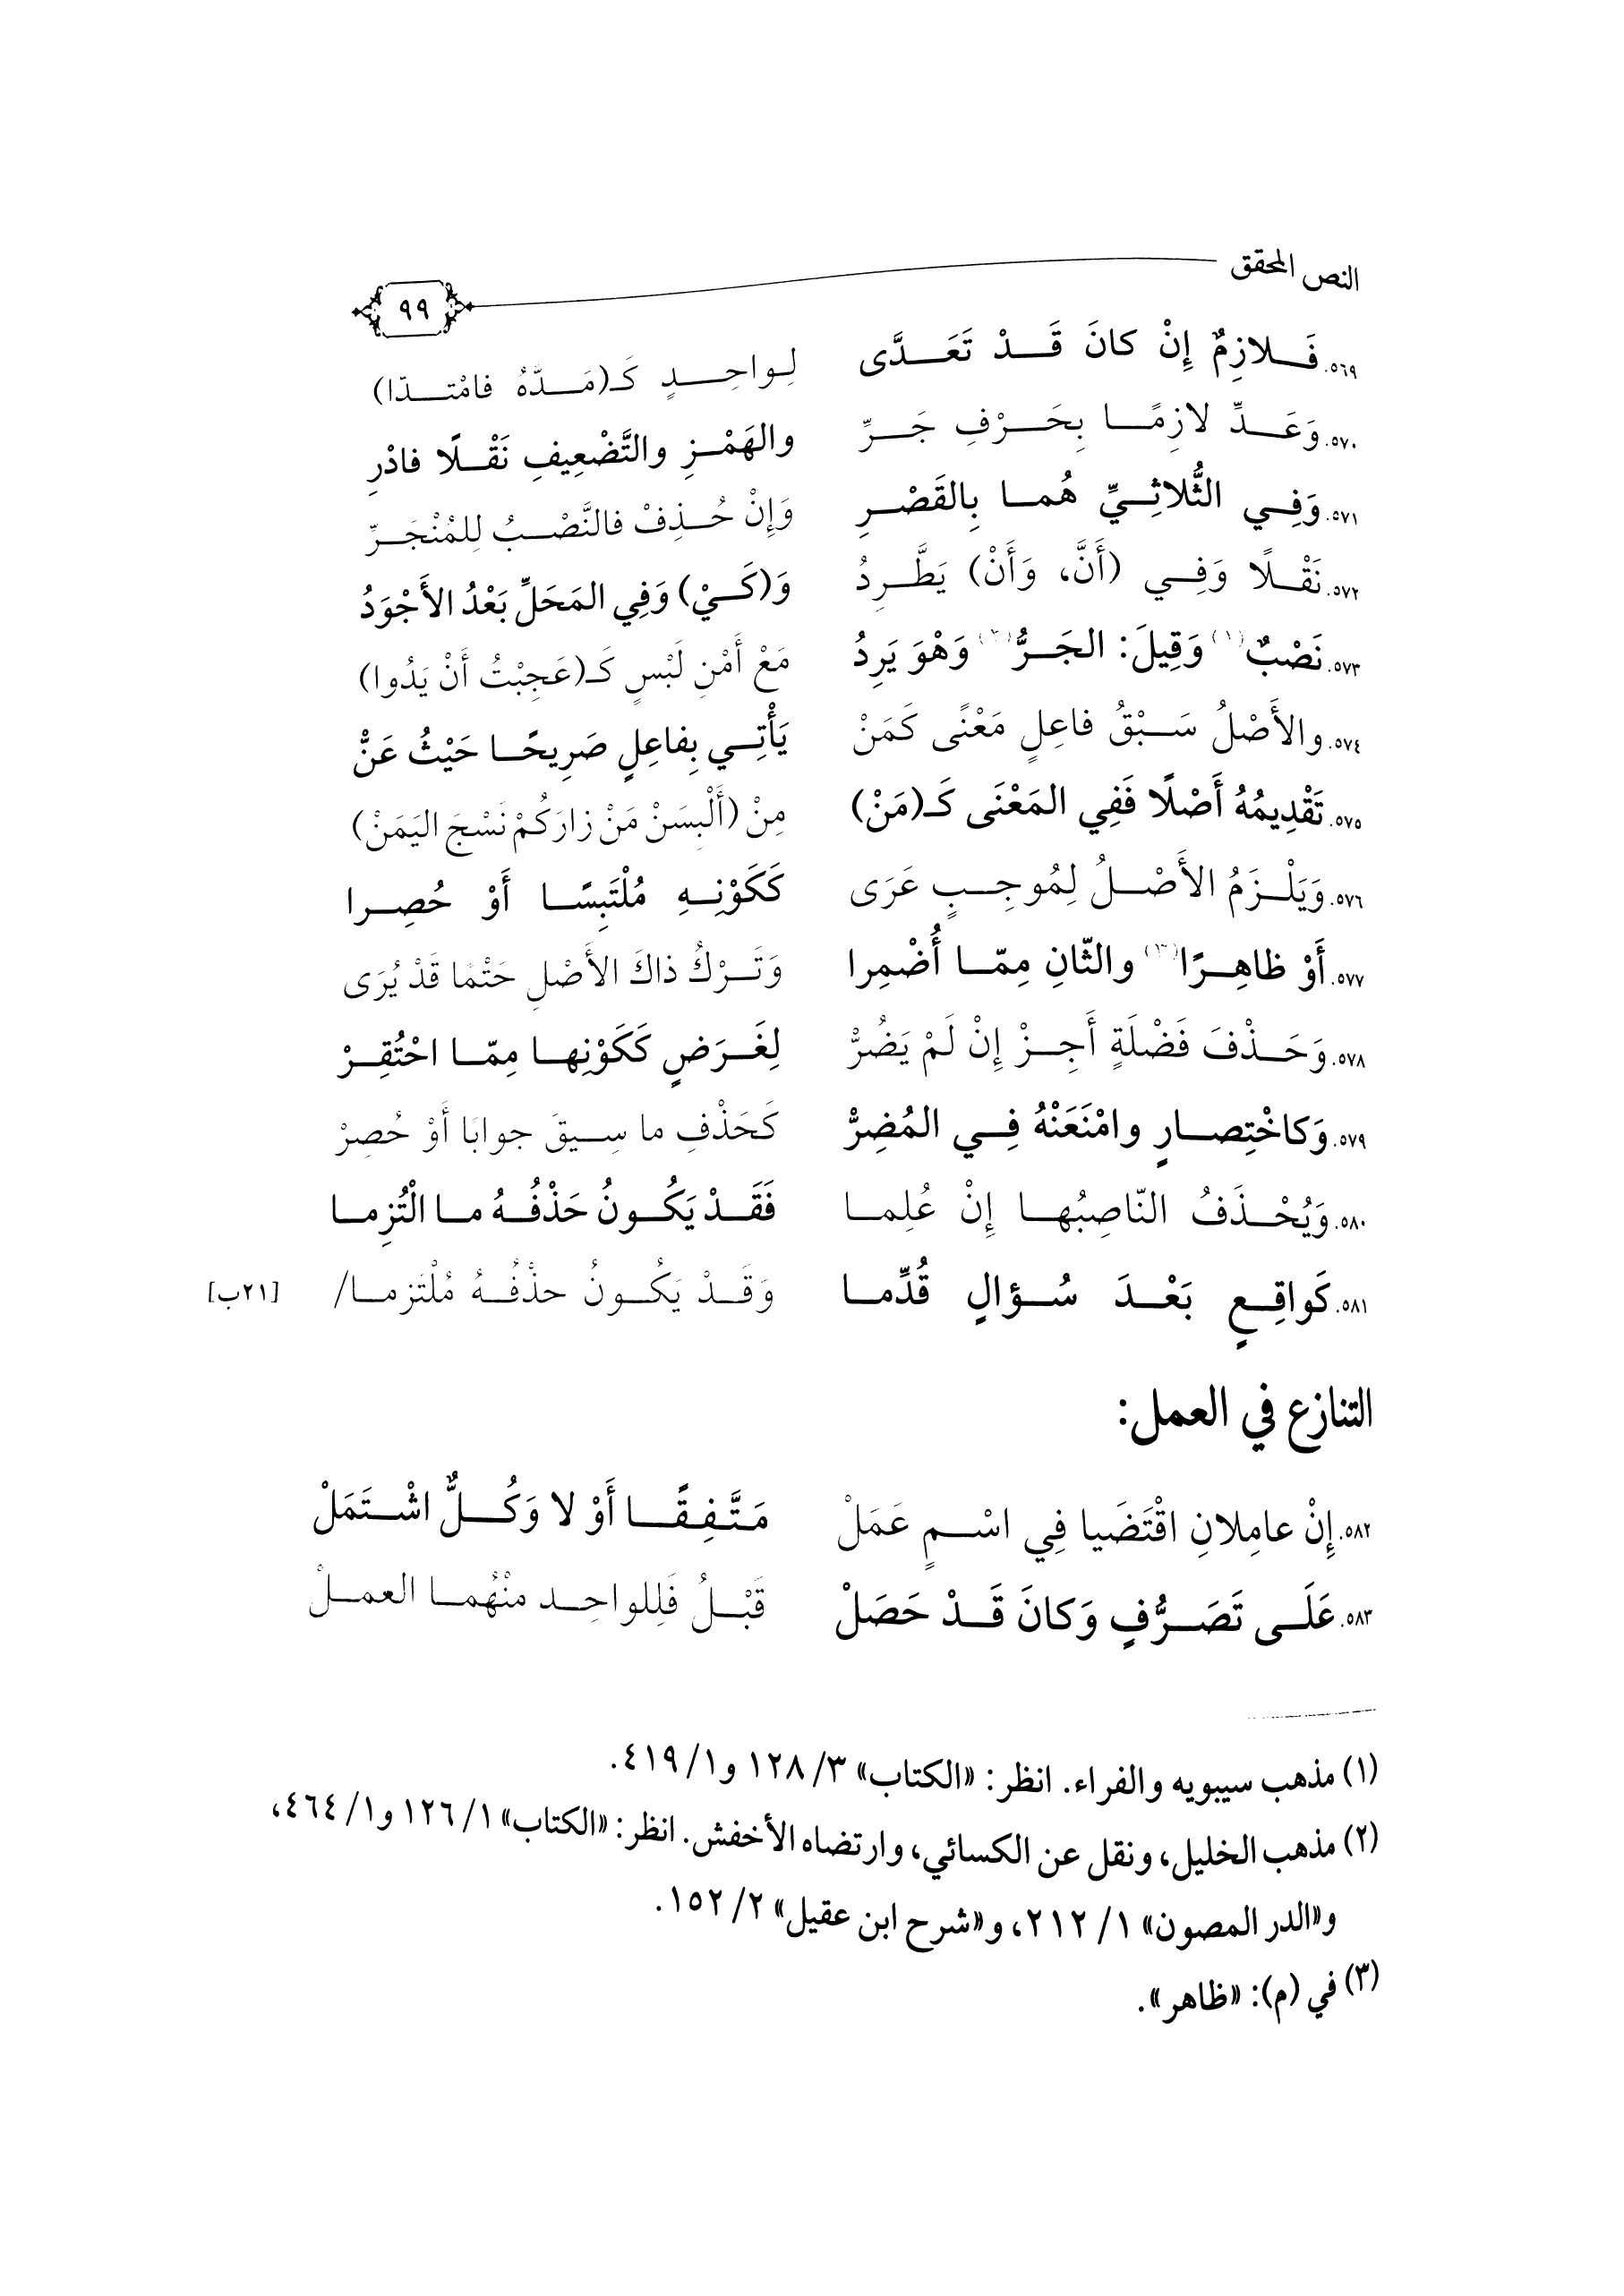 النص المحقق
٩٩
٥٦٩. فَلازِمٌ إِنْ كانَ قَدْ تَعَدَّى لِواحِدٍ كَـ(مَدَّهُ فامْتدّا)
٥٧٠. وَعَدِّ لازِمًا بِحَرْفِ جَرِّ والهَمْزِ والتَّضْعِيفِ نَقْلًا فادْرِ
٥٧١. وَفِي الثُّلاثِيِّ هُما بِالقَصْرِ وَإِنْ حُذِفْ فالنَّصْبُ لِلمُنْجَرِّ
٥٧٢. نَقْلًا وَفِي (أَنَّ، وَأَنْ) يَطَّرِدُ وَ(كَيْ) وَفِي المَحَلِّ بَعْدُ الأَجْوَدُ
٥٧٣. نَصْبٌ(١) وَقِيلَ: الجَرُّ(٢) وَهْوَ يَرِدُ مَعْ أَمْنِ لَبْسٍ كَـ(عَجِبْتُ أَنْ يَدُوا)
٥٧٤. والأَصْلُ سَبْقُ فاعِلٍ مَعْنًى كَمَنْ يَأْتِي بِفاعِلٍ صَرِيحًا حَيْثُ عَنّْ
٥٧٥. تَقْدِيمُهُ أَصْلًا فَفِي المَعْنَى كَـ(مَنْ) مِنْ (أَلْبِسَنْ مَنْ زارَكُمْ نَسْجَ اليَمَنْ)
٥٧٦. وَيَلْزَمُ الأَصْلُ لِمُوجِبٍ عَرَى كَكَوْنِهِ مُلْتَبِسًا أَوْ حُصِرا
٥٧٧. أَوْ ظاهِرًا(٣) والثّانِ مِمّا أُضْمِرا وَتَرْكُ ذاكَ الأَصْلِ حَتْمًا قَدْ يُرَى
٥٧٨. وَحَذْفَ فَضْلَةٍ أَجِزْ إِنْ لَمْ يَضُرّْ لِغَرَضٍ كَكَوْنِها مِمّا احْتُقِرْ
٥٧٩. وَكاخْتِصارٍ وامْنَعَنْهُ فِي المُضِرّْ كَحَذْفِ ما سِيقَ جوابًا أَوْ حُصِرْ
٥٨٠. وَيُحْذَفُ النّاصِبُها إِنْ عُلِما فَقَدْ يَكُونُ حَذْفُهُ ما الْتُزِما
٥٨١. كَواقِعٍ بَعْدَ سُؤالٍ قُدِّما وَقَدْ يَكُونُ حذْفُهُ مُلْتَزما/ [٢١ب]
التنازع في العمل:
٥٨٢. إِنْ عامِلانِ اقْتَضَيا فِي اسْمٍ عَمَلْ مَتَّفِقًا أَوْ لا وَكُلٌّ اشْتَمَلْ
٥٨٣. عَلَى تَصَرُّفٍ وَكانَ قَدْ حَصَلْ قَبْلُ فَلِلواحِد منْهُما العملْ
(١) مذهب سيبويه والفراء. انظر: «الكتاب» ٣/ ١٢٨ و١/ ٤١٩.
(٢) مذهب الخليل، ونقل عن الكسائي، وارتضاه الأخفش. انظر: «الكتاب» ١/ ١٢٦ و١/ ٤٦٤،
و«الدر المصون» ١/ ٢١٢، و«شرح ابن عقيل» ٢/ ١٥٢.
(٣) في (م): «ظاهر».